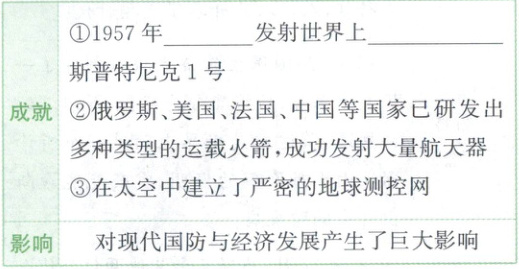 ①1957年________发射世界上____________
斯普特尼克1号
成就
②俄罗斯、美国、法国、中国等国家已研发出
多种类型的运载火箭,成功发射大量航天器
③在太空中建立了严密的地球测控网
影响
对现代国防与经济发展产生了巨大影响